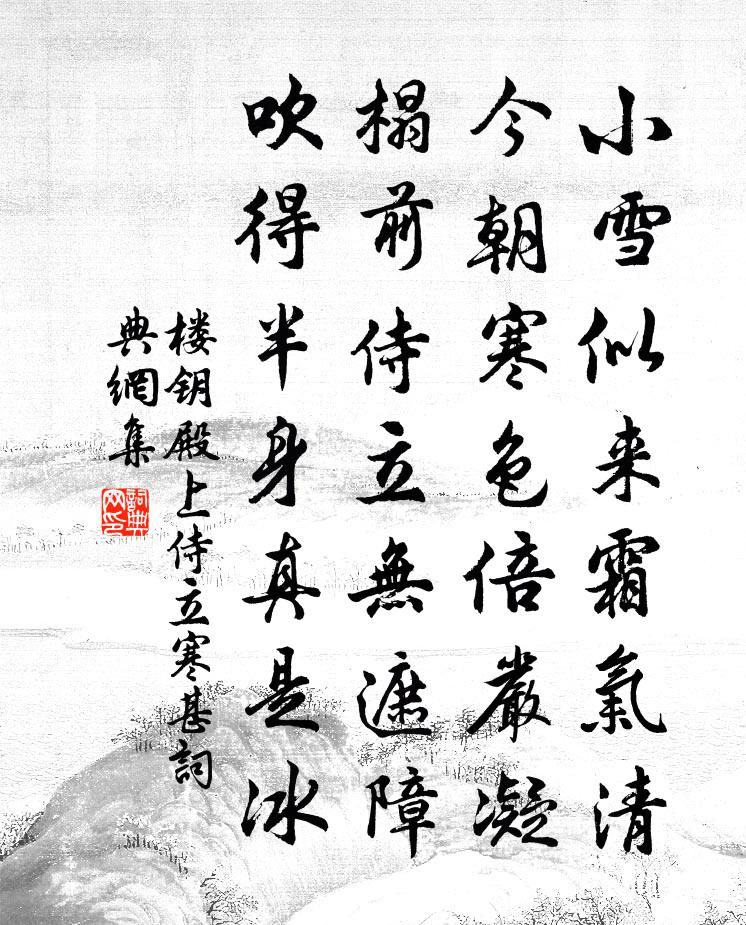 小雪似来霜氣清
今朝寒色倍嚴凝
榻前侍立無遮障
吹得半身真是冰
楼钥殿上侍立寒甚詞
典網集
詞典网印